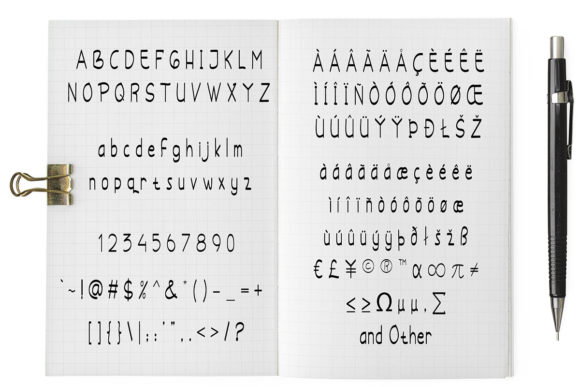 ABCDEFGHIJKLM
NOPQRSTUVWXYZ
abcdefghijklm
nopqrstuvwxyz
1234567890
`~!@#$%^&*()-_=+
[]{}\|;:'",.<>/?
ÀÁÂÃÄÅÇÈÉÊË
ÌÍÎÏÑÒÓÔÕÖØŒ
ÙÚÛÜÝŸÞÐŁŠŽ
àáâãäåæçèéêë
ìíîïñòóôõöøœ
ùúûüýÿþðłšžß
€£¥©®™α∞π≠
≤≥Ωµμ,∑
and Other